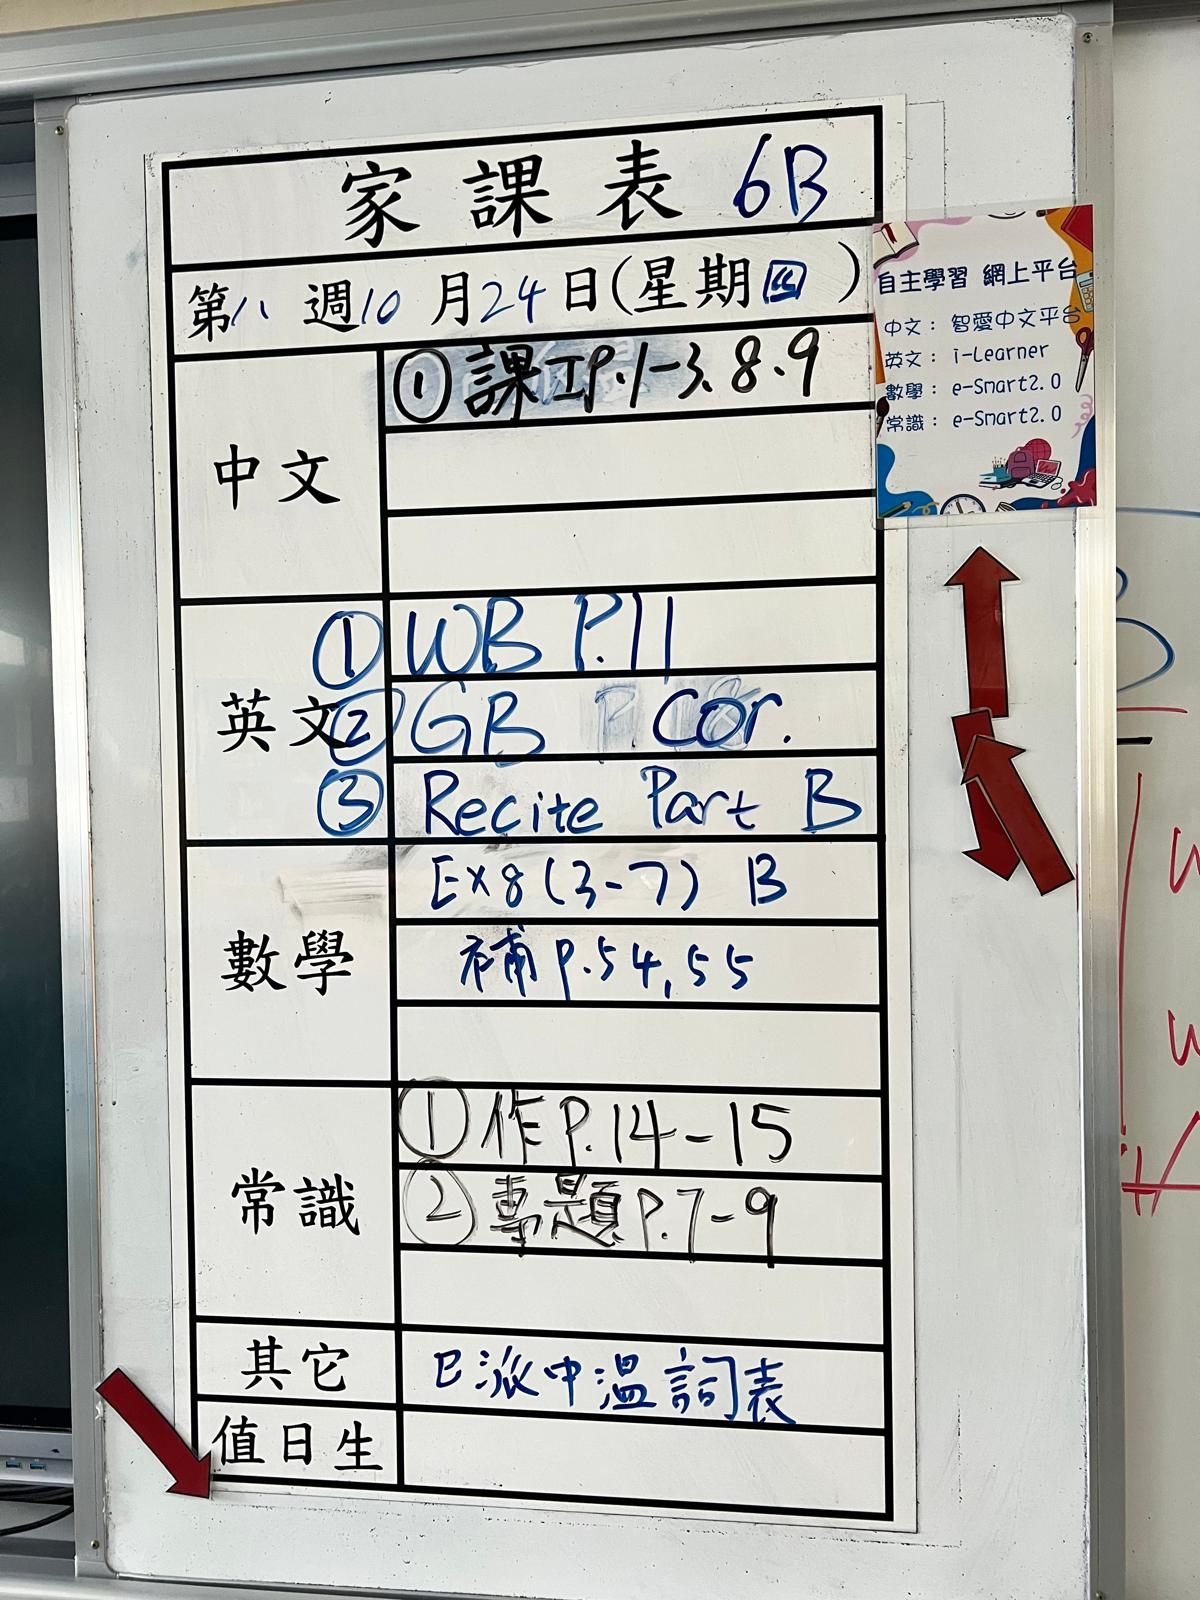 家課表 6B
第八週10月24日(星期四)
中文
①課工P.1-3、8、9
英文
①WB P.11
②GB Cor.
③Recite Part B
數學
Ex8(3-7) B
補P.54,55
常識
①作P.14-15
②專題P.7-9
其它
已派中溫詞表
值日生
自主學習 網上平台
中文：智愛中文平台
英文：i-Learner
數學：e-Smart2.0
常識：e-Smart2.0